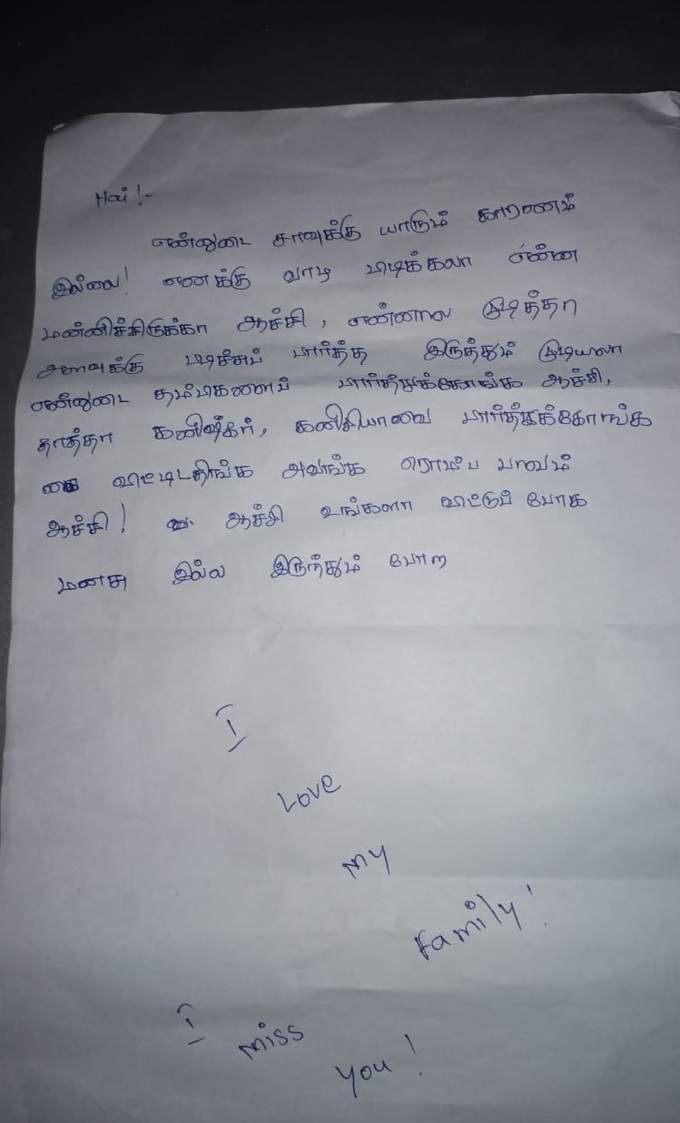 Hai !-
என்னுடை சாவுக்கு யாரும் காரணம்
இல்லை! எனக்கு வாழ பிடிக்கலா என்ன
மன்னிச்சிருக்கா ஆச்சி, என்னால முடித்தா
அளவுக்கு படிச்சுப் பார்த்த இருந்தும் முடியலா
என்னுடை தம்பிகளைப் பார்த்துக்கோங்க ஆச்சி,
தாத்தா கனிஷ்கர், கனிசியாவை பார்த்துக்கோங்க
விட்டிடதிங்க அவங்க ரொம்ப பாவம்
ஆச்சி! ஆச்சி உங்களா விட்டுப் போக
மனசு இல்ல இருந்தும் போற
I
Love
my
Family!
I
miss
you!